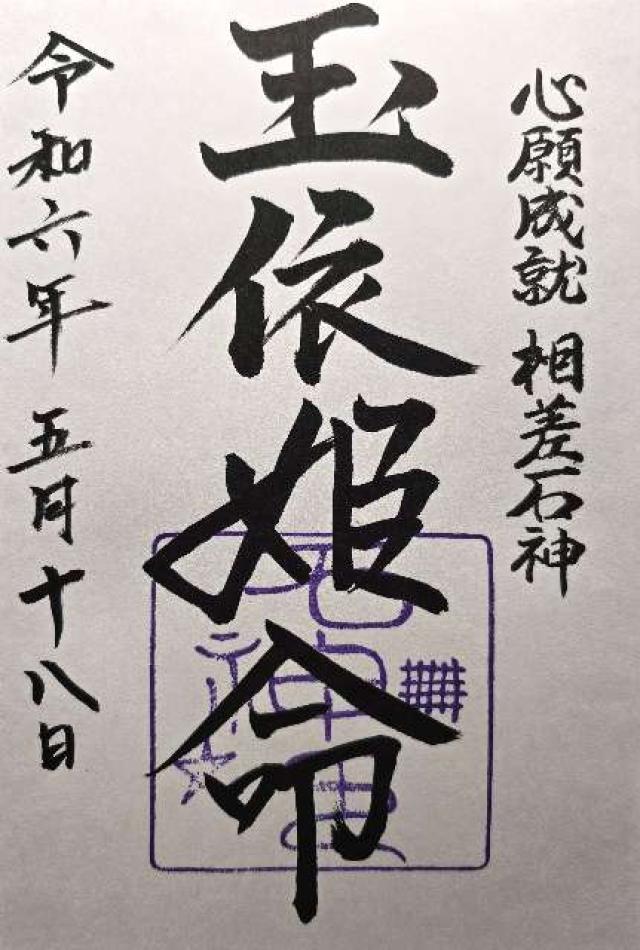 心願成就 相差石神
玉依姫命
令和六年 五月十八日